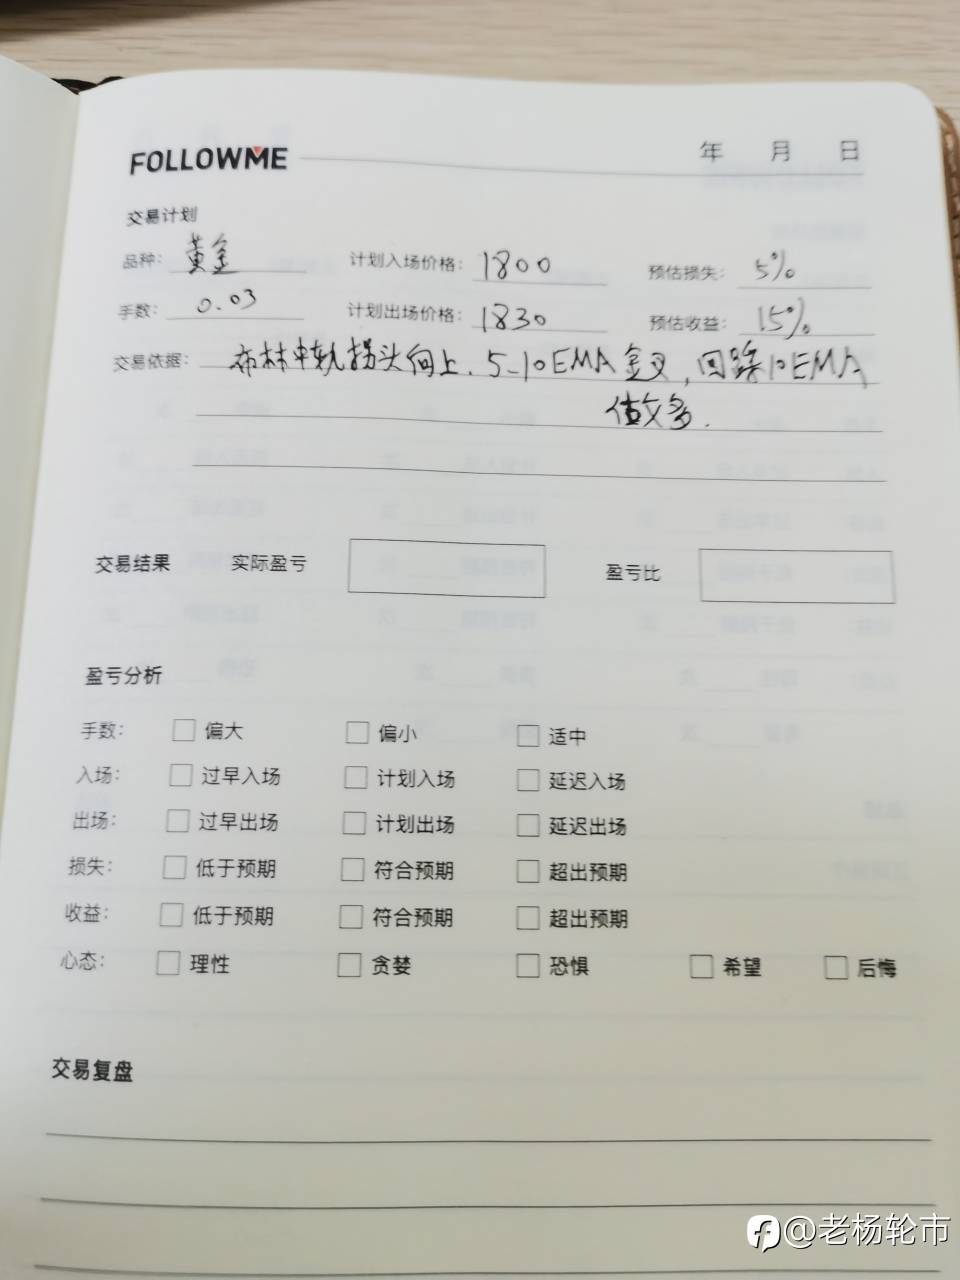 FOLLOWME 年 月 日
交易计划
品种: 黄金 计划入场价格: 1800 预估损失: 5%
手数: 0.03 计划出场价格: 1830 预估收益: 15%
交易依据: 布林中轨拐头向上.5-10EMA金叉,回踩10EMA
做多.
交易结果 实际盈亏 盈亏比
盈亏分析
手数: 偏大 偏小 适中
入场: 过早入场 计划入场 延迟入场
出场: 过早出场 计划出场 延迟出场
损失: 低于预期 符合预期 超出预期
收益: 低于预期 符合预期 超出预期
心态: 理性 贪婪 恐惧 希望 后悔
交易复盘
@老杨轮市